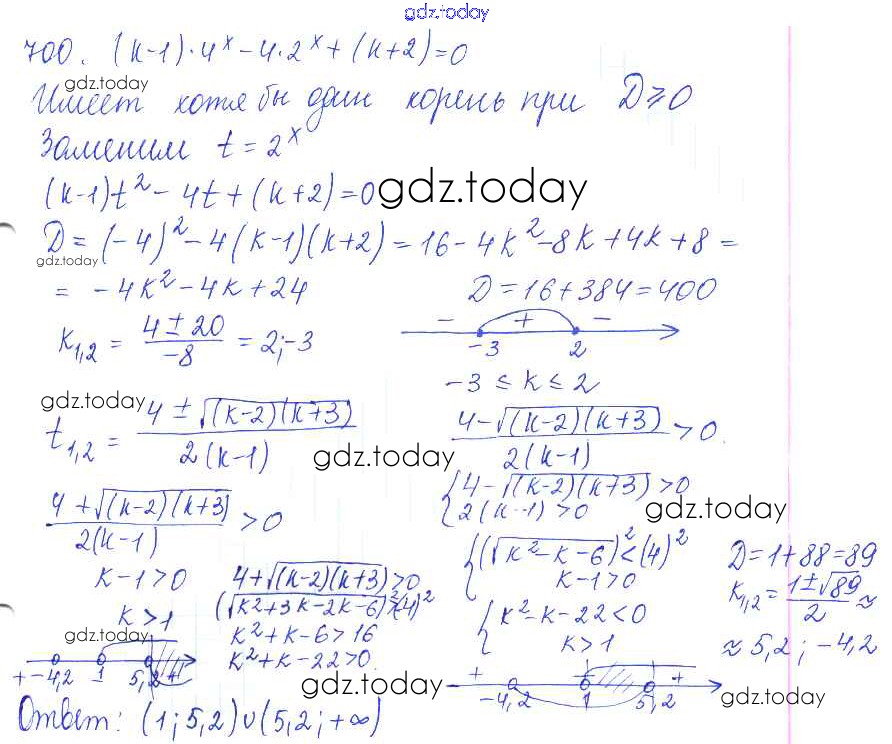 gdz.today
700. (k-1)·4^x - 4·2^x + (k+2) = 0
gdz.today
Имеет хотя бы один корень при D ≥ 0
Заменим t = 2^x
(k-1)t² - 4t + (k+2) = 0
gdz.today
D = (-4)² - 4(k-1)(k+2) = 16 - 4k² - 8k + 4k + 8 =
gdz.today
= -4k² - 4k + 24
D = 16 + 384 = 400
k₁,₂ = (4 ± 20)/(-8) = 2; -3
- + -
-3 2
-3 ≤ k ≤ 2
gdz.today
t₁,₂ = (4 ± √((k-2)(k+3)))/(2(k-1))
gdz.today
(4 - √((k-2)(k+3)))/(2(k-1)) > 0
{ 4 - √((k-2)(k+3)) > 0
2(k-1) > 0
gdz.today
(4 + √((k-2)(k+3)))/(2(k-1)) > 0
k-1 > 0
k > 1
4 + √((k-2)(k+3)) > 0
(√(k² + 3k - 2k - 6))² > (4)²
k² + k - 6 > 16
k² + k - 22 > 0
{ (√(k² - k - 6))² < (4)²
k-1 > 0
{ k² - k - 22 < 0
k > 1
D = 1 + 88 = 89
k₁,₂ = (1 ± √89)/2 ≈
≈ 5,2; -4,2
gdz.today
+ -4,2 1 5,2 +
gdz.today
+ +
-4,2 1 5,2
gdz.today
Ответ: (1; 5,2) ∪ (5,2; +∞)